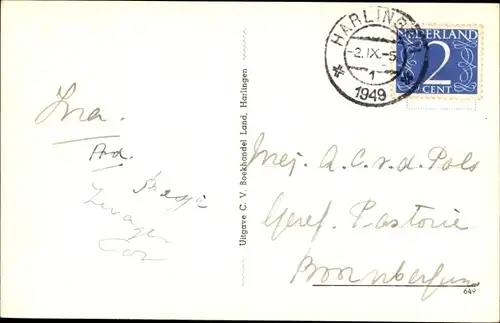 Ina.
Ard.
Cor
Uitgave C. V. Boekhandel Land, Harlingen
HARLINGEN
-2.IX.-5
1
1949
NEDERLAND
2
CENT
Mej. A.C.v.d. Pols
Geref. Pastorie
Boornbergum
649